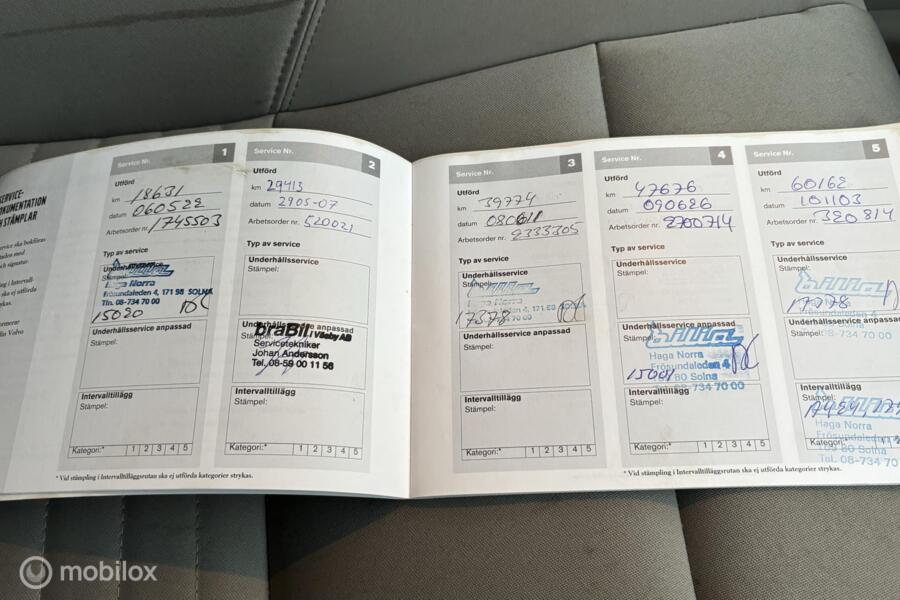 SERVICE-
DOKUMENTATION
STÄMPLAR
Service Nr. 1
Utförd
km 18631
datum 060522
Arbetsorder nr. 1745503
Typ av service
Underhållsservice
Stämpel:
Haga Norra
Frösundaleden 4, 171 98 SOLNA
Tfn. 08-734 70 00
15020
Underhållsservice anpassad
Stämpel:
Intervalltillägg
Stämpel:
Kategori:* 1 2 3 4 5
Service Nr. 2
Utförd
km 29413
datum 2905-07
Arbetsorder nr. 520021
Typ av service
Underhållsservice
Stämpel:
Underhållsservice anpassad
Stämpel:
braBil i Väsby AB
Servicetekniker
Johan Andersson
Tel. 08-59 00 11 56
Intervalltillägg
Stämpel:
Kategori:* 1 2 3 4 5
* Vid stämpling i Intervalltilläggsrutan ska ej utförda kategorier strykas.
Service Nr. 3
Utförd
km 39774
datum 080611
Arbetsorder nr. 2333305
Typ av service
Underhållsservice
Stämpel:
Haga Norra
Frösundaleden 4, 171 98 SOLNA
17378
Underhållsservice anpassad
Stämpel:
Intervalltillägg
Stämpel:
Kategori:* 1 2 3 4 5
Service Nr. 4
Utförd
km 47676
datum 090626
Arbetsorder nr. 2700714
Typ av service
Underhållsservice
Stämpel:
Underhållsservice anpassad
Stämpel:
Bilia
Haga Norra
Frösundaleden 4
169 80 Solna
08-734 70 00
15001
Intervalltillägg
Stämpel:
Kategori:* 1 2 3 4 5
Service Nr. 5
Utförd
km 60162
datum 101103
Arbetsorder nr. 320814
Typ av service
Underhållsservice
Stämpel:
Bilia
Haga Norra
Frösundaleden 4
17378
Underhållsservice anpassad
Stämpel:
Intervalltillägg
Stämpel:
Haga Norra
Frösundaleden
169 80 Solna
Tel. 08-734 70
Kategori:*
* Vid stämpling i Intervalltilläggsrutan ska ej utförda kategorier strykas.
mobilox